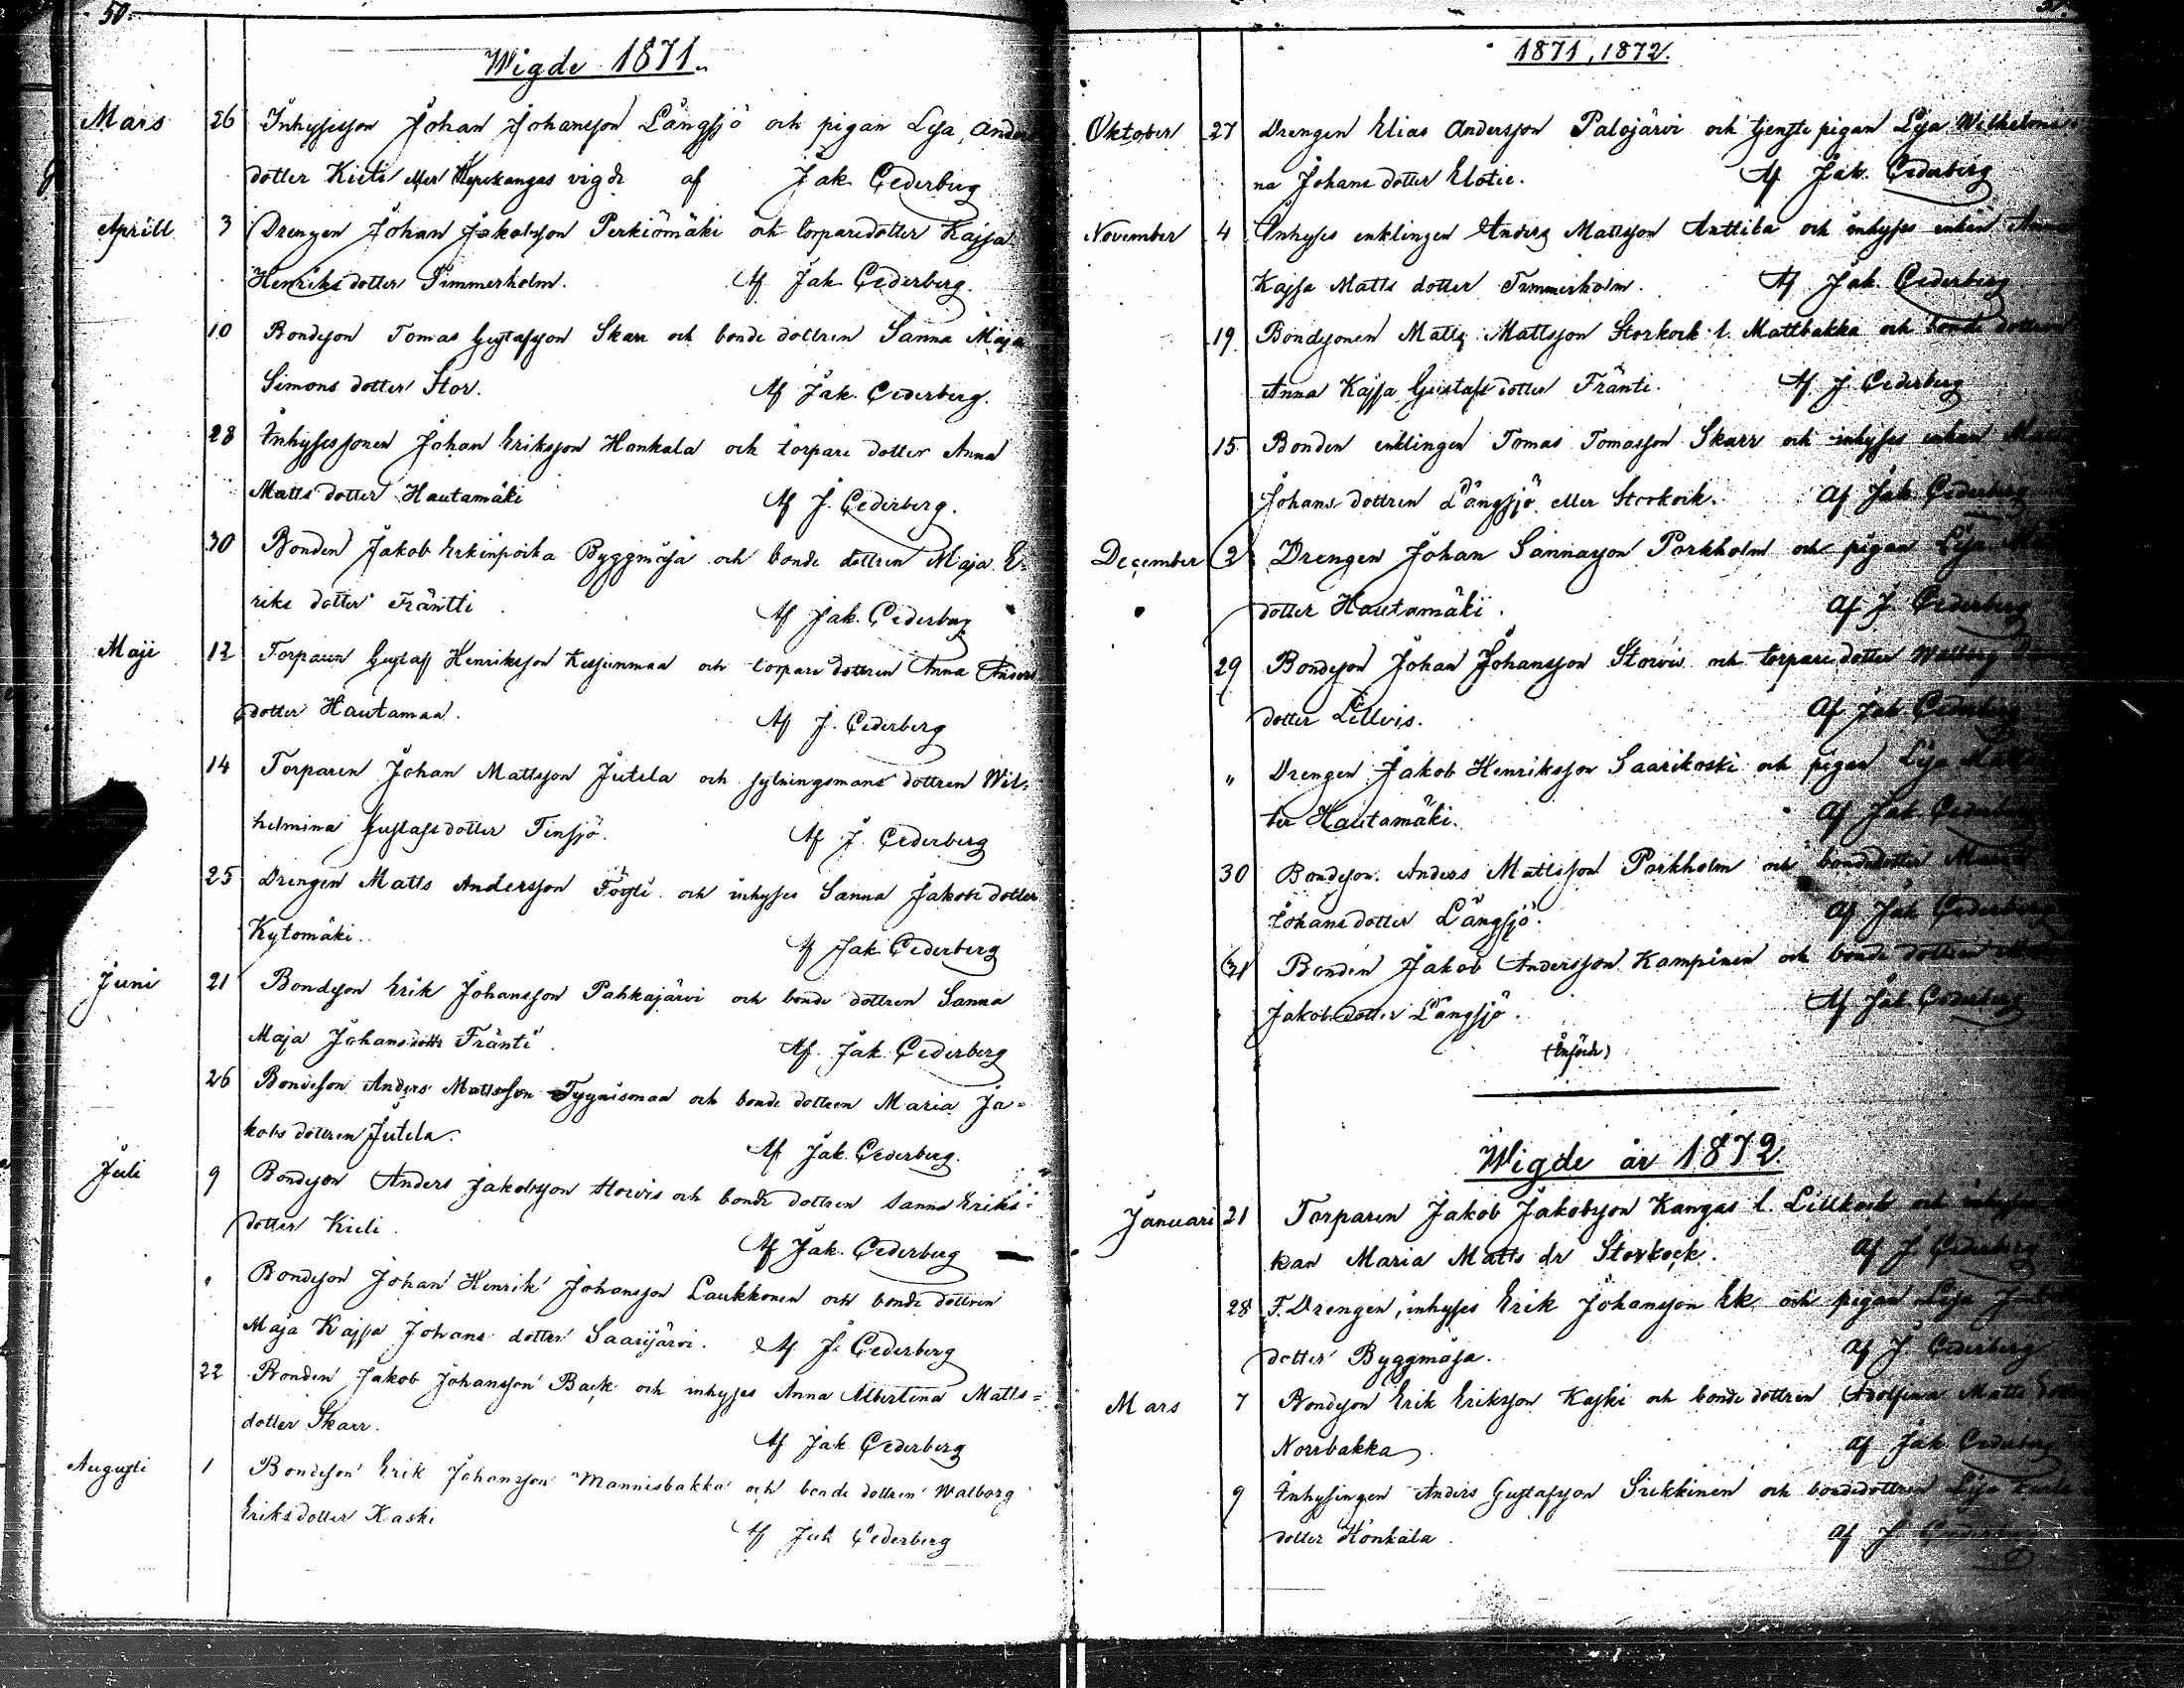 50.
Wigde 1871.
Mars 26 Inhysesson Johan Johansson Långsjö och pigan Lisa Anders
dotter Kieli eller Kepikangas vigde af Jak Cederberg
Aprill 3 Drengen Johan Jakobsson Perkiömäki och torparedotter Kajsa
Henriks dotter Timmerholm. Af Jak Cederberg.
10 Bondeson Tomas Gustafsson Skarr och bonde dottren Sanna Maja
Simons dotter Stor. Af Jak. Cederberg.
28 Inhysessonen Johan Eriksson Honkala och torpare dotter Anna
Matts dotter Hautamäki Af J. Cederberg.
30 Bonden Jakob Erkinpoika Byggmäsa och bonde dottren Maja E-
riks dotter Träntti Af Jak. Cederberg
Maji 12 Torparen Gustaf Henriksson och torpare dottren Anna Anders
dotter Hautamaa. Af J. Cederberg
14 Torparen Johan Mattsson Jutila och sytningsmans dottren Wil-
helmina Gustafsdotter Tensjö. Af J. Cederberg
25 Drengen Matts Andersson och inhyses Sanna Jakobs dotter
Kytomäki. Af Jak Cederberg
Juni 21 Bondeson Erik Johansson Pahkajärvi och bonde dottren Sanna
Maja Johansdottr Tränti Af. Jak. Cederberg
26 Bondeson Anders Mattsson Tyynismaa och bonde dottren Maria Ja-
kobs dottren Jutila. Af Jak. Cederberg.
Juli 9 Bondeson Anders Jakobsson Storvis och bonde dottren Sanna Eriks-
dotter Kieli. Af Jak. Cederberg
" Bondeson Johan Henrik Johansson Laukkonen och bonde dottren
Maja Kajsa Johans dotter Saarijärvi. Af J. Cederberg
22 Bonden Jakob Johansson Back och inhyses Anna Albertina Matts-
dotter Skarr. Af Jak Cederberg
Augusti 1 Bondeson Erik Johansson Mannisbakka och bonde dottren Walborg
Eriksdotter Kaski Af Jak Cederberg
1871, 1872.
Oktober 27 Drengen Elias Andersson Palojärvi och tjenste pigan Lisa Wilhelmi
na Johans dotter Af Jak. Cederberg
November 4 Inhyses enklingen Anders Mattsson Anttila och inhyses enkan Anna
Kajsa Matts dotter Timmerholm. Af Jak. Cederberg
19 Bondesonen Matts Mattsson Storkock l. Mattbakka och bonde dottren
Anna Kajsa Gustafs dotter Tränti. Af J. Cederberg
15 Bonden enklingen Tomas Tomasson Skarr och inhyses enkan
Johans dottren Långsjö eller Storkock. Af Jak Cederberg
December 2 Drengen Johan Sannason Porkholm och pigan Lisa
dotter Hautamäki. Af J. Cederberg
29 Bondeson Johan Johansson Storvis och torparedotter Walborg
dotter Lillvis. Af Jak Cederberg
" Drengen Jakob Henriksson Saarikoski och pigan Lisa
ter Hautamäki. Af Jak Cederberg
30 Bondeson. Anders Mattsson Porkholm och bondedotter
Johans dotter Långsjö. Af Jak Cederberg
31 Bonden Jakob Andersson Kampinen och bonde dottren
Jakobs dotter Långsjö. Af Jak Cederberg
Wigde år 1872.
Januari 21 Torparen Jakob Jakobsson Kangas l. Lillkock och
kan Maria Matts dr Storkock. Af J. Cederberg
28 F. Drengen, inhyses Erik Johansson Ek och pigan Lisa
dotter Byggmäsa. Af J. Cederberg
Mars 7 Bondeson Erik Eriksson Kaski och bonde dottren Adolfina Matts dotter
Norrbakka. Af Jak. Cederberg
9 Inhysingen Anders Gustafsson Siekkinen och bondedottren Lisa Karls
dotter Honkala. Af J Cederberg